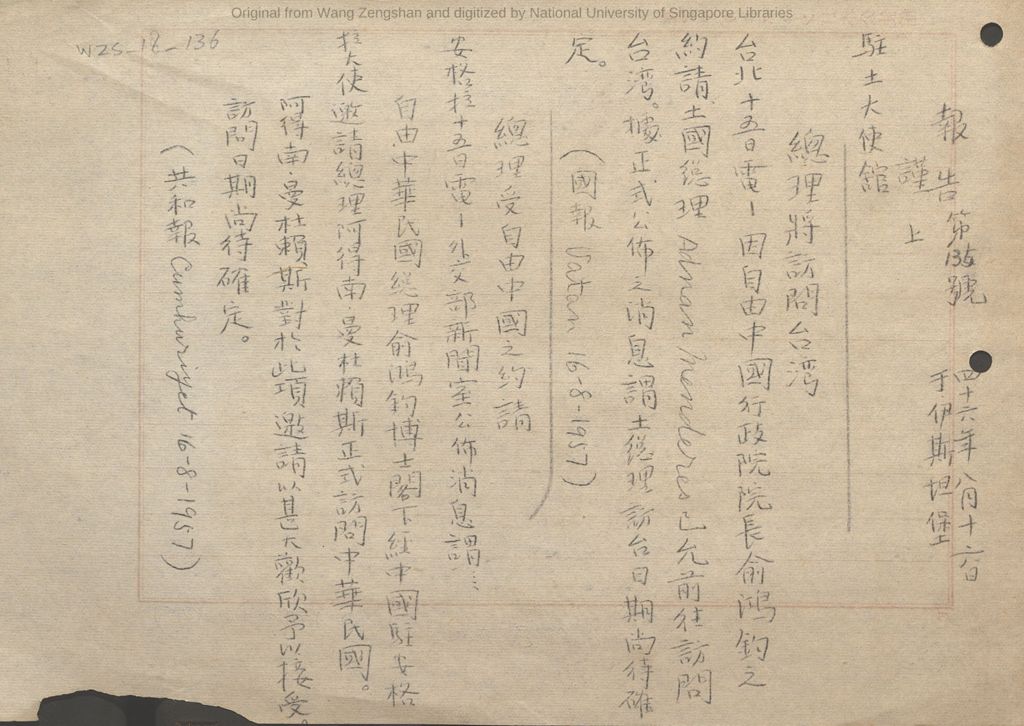 Original from Wang Zengshan and digitized by National University of Singapore Libraries
WZS_18_136
報告第135號
四十六年八月十六日
于伊斯坦堡
謹上
駐土大使館
總理將訪問台湾
台北十五日電—因自由中國行政院院長俞鴻鈞之
約請土國總理 Adnan Menderes 已允前往訪問
台湾。據正式公佈之消息謂土總理訪台日期尚待確
定。
(國報 Vatan 16-8-1957)
總理受自由中國之約請
安格拉十五日電—外交部新聞室公佈消息謂:…
自由中華民國總理俞鴻鈞博士閣下經中國駐安格
拉大使邀請總理阿得南·曼杜賴斯正式訪問中華民國。
阿得南·曼杜賴斯對於此項邀請以甚大歡欣予以接受。
訪問日期尚待確定。
(共和報 Cumhuriyet 16-8-1957)